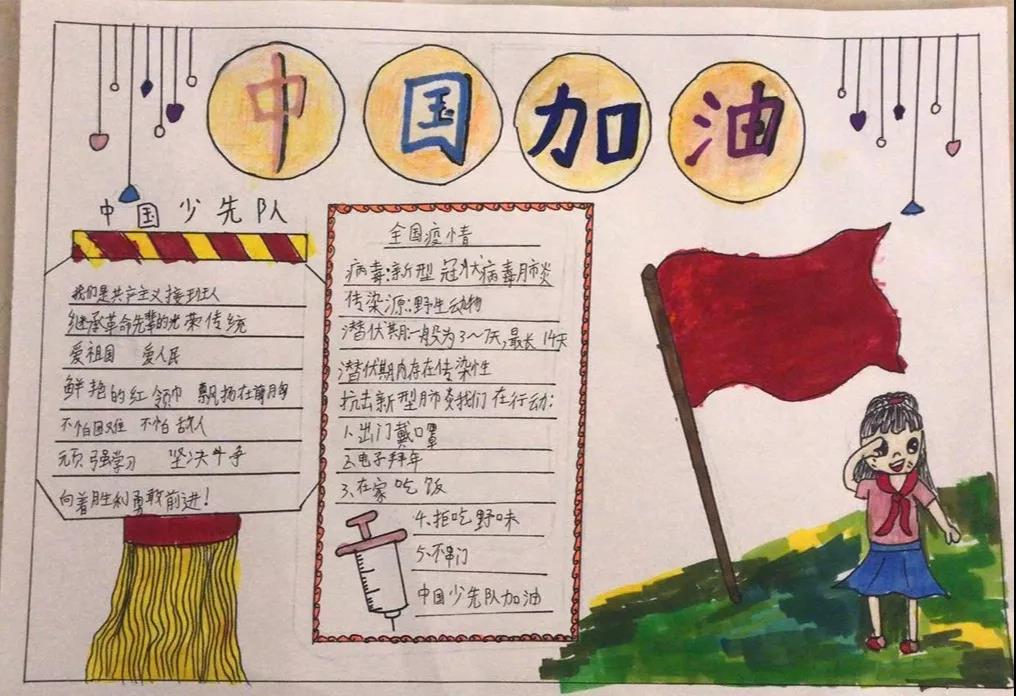 中国加油
中国少先队
我们是共产主义接班人
继承革命先辈的光荣传统
爱祖国 爱人民
鲜艳的红领巾 飘扬在前胸
不怕困难 不怕敌人
顽强学习 坚决斗争
向着胜利勇敢前进！
全国疫情
病毒:新型冠状病毒肺炎
传染源:野生动物
潜伏期:一般为3～7天,最长14天
潜伏期内存在传染性
抗击新型肺炎我们在行动:
1、出门戴口罩
2、电子拜年
3、在家吃饭
4、拒吃野味
5、不串门
中国少先队加油